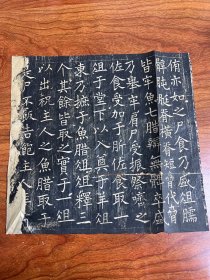 侑亦如之尸食乃盛俎臑
臂肫脡脊橫脊短脅代脅
皆牢魚七腊辯無髀卒盛
乃舉牢肩尸受振祭嚌之
佐食受加于肵佐食取一
俎于堂下以入奠于羊俎
東乃摭于魚腊俎俎釋三
个其餘皆取之實于一俎
以出祝主人之魚腊取于
是尸不飯告飽主人